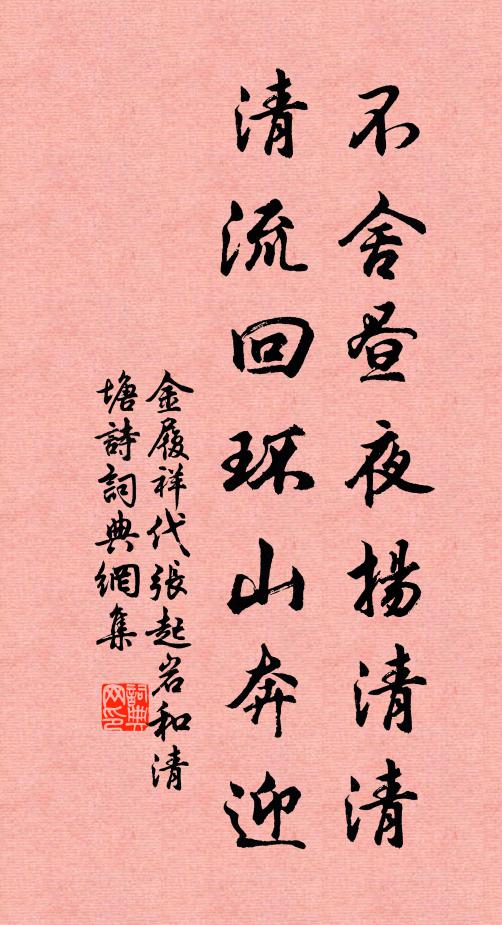 不舍昼夜揚清清
清流回环山奔迎
金履祥代張起岩和清
塘詩詞典網集
詞典网印